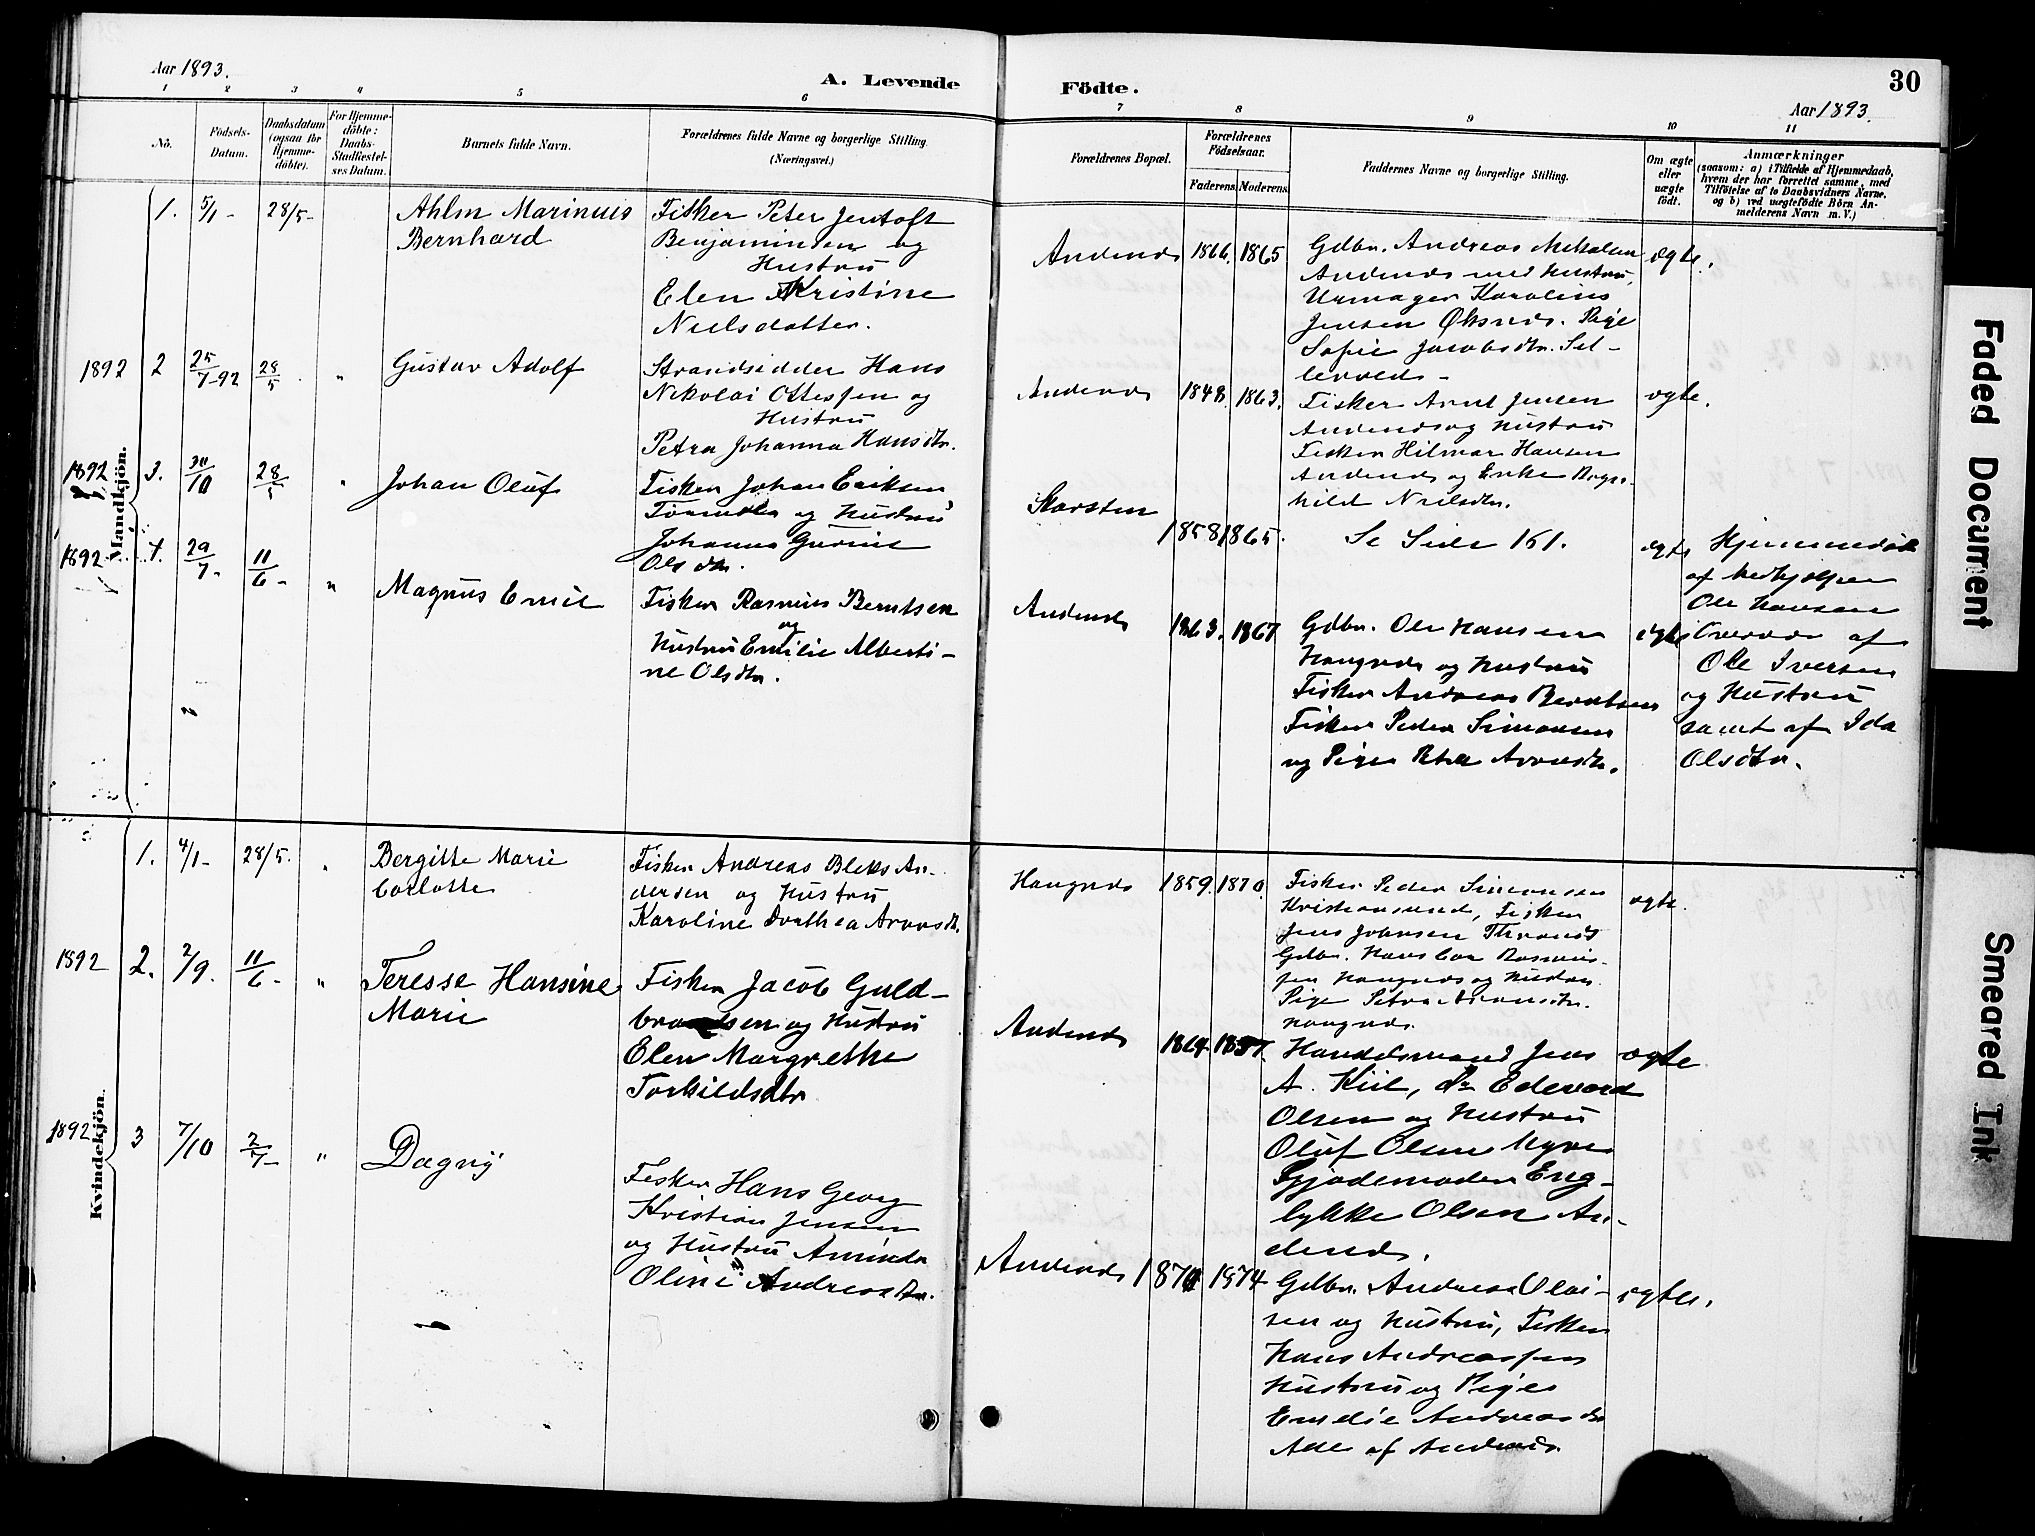 Aar 1893.
A. Levende Födte.
30
Aar 1893.
1 2 3 4 5 6 7 8 9 10 11
No.
Födsels-
Datum.
Daabsdatum
(ogsaa för
Hjemme-
döbte).
For Hjemme-
döbte:
Daabs-
Stadfæstel-
ses Datum.
Barnets fulde Navn.
Forældrenes fulde Navne og borgerlige Stilling.
(Næringsvei.)
Forældrenes Bopæl.
Forældrenes
Födselsaar.
Faderens. Moderens.
Faddernes Navne og borgerlige Stilling.
Om ægte
eller
uægte
födt.
Anmærkninger
(saasom: a) i Tilfælde af Hjemmedaab,
hvem der har forrettet samme, med
Tilföielse af to Daabsvidners Navne,
og b) ved uægtefödte Börn An-
melderens Navn m. V.)
Mandkjön.
1. 5/1- 28/5-
Ahlm Marinius
Bernhard
Fisker Peter Jentoft
Benjaminsen og
Hustru
Elen Kristine
Nielsdatter.
Andenes 1866. 1865
Gdbr. Andreas Nikolaisen
Andenes med Hustru,
Urmager Karolius
Jensen Øksnes. Pige
Sofie Jacobsdtr. Sel-
levold -
ægte.
1892 2 25/7-92 28/5 "
Gustav Adolf
Strandsidder Hans
Nikolai Ottessen og
Hustru
Petra Johanna Hansdtr.
Andenes 1848. 1863.
Fisker Arnt Jensen
Andenes og Hustru
Fisker Hilmar Hansen
Andenes og Enke Ragn-
hild Nielsdtr.
ægte.
1892 3. 30/10 28/5 "
Johan Oluf
Fisker Johan Eriksen
og Hustru
Johanna Gurine
Olsdtr.
1858 1865.
Se Side 161.
ægte
Hjemmedøbt
af Medhjelper
Ole Hansen
Overvær af
Ole Iversen
og Hustru
samt af Ida
Olsdtr.
1892 4. 29/7- 11/6- "
Magnus Emil
Fisker Rasmus Berntsen
og
Hustru Emilie Alberti-
ne Olsdtr.
Andenes 1863. 1867
Gdbr. Ole Hansen
Haugnes og Hustru
Fisker Andreas Berntsen
Fisker Peder Simonsen
og Pige Petra Aronsdtr.
ægte
Kvindekjön.
1. 4/1- 28/5. "
Bergitte Marie
Carlotte
Fisker Andreas Bleks An-
dersen og Hustru
Karoline Dorthea Aronsdtr.
Haugnes 1859. 1870.
Fisker Peder Simonsen
Kristiansund, Fisker
Jens Johnsen
Gdbr. Hans Cor Rasmus-
sen Haugnes og Hustru.
Pige Petra Aronsdtr.
Haugnes.
ægte.
1892 2. 2/9. 11/6- "
Teresse Hansine
Marie
Fisker Jacob Guld-
brandsen og Hustru
Elen Margrethe
Torkildsdtr
Andenes 1864. 1857.
Handelsmand Jens
A. Kiil, Edevard
Olsen og Hustru
Oluf Olsen Myre
Gjordemoder Eng-
lykke Olsen An-
denes.
ægte
1892 3 7/10 2/7- "
Dagny
Fisker Hans Georg
Kristian Jensen
og Hustru Aminda
Oline Andreasdtr.
Andenes 1870 1874
Gdbr. Andreas Olai-
sen og Hustru, Fisker
Hans Andreassen
Hustru og Pige
Emelie Andreasdtr
Alle af Andenes.
ægte.
Faded Document
Smeared Ink